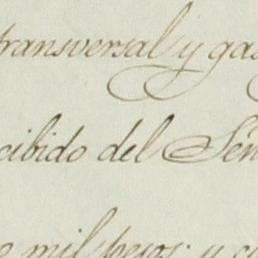 transversal y gas
cibido del Señ
o mil pesos; y cu